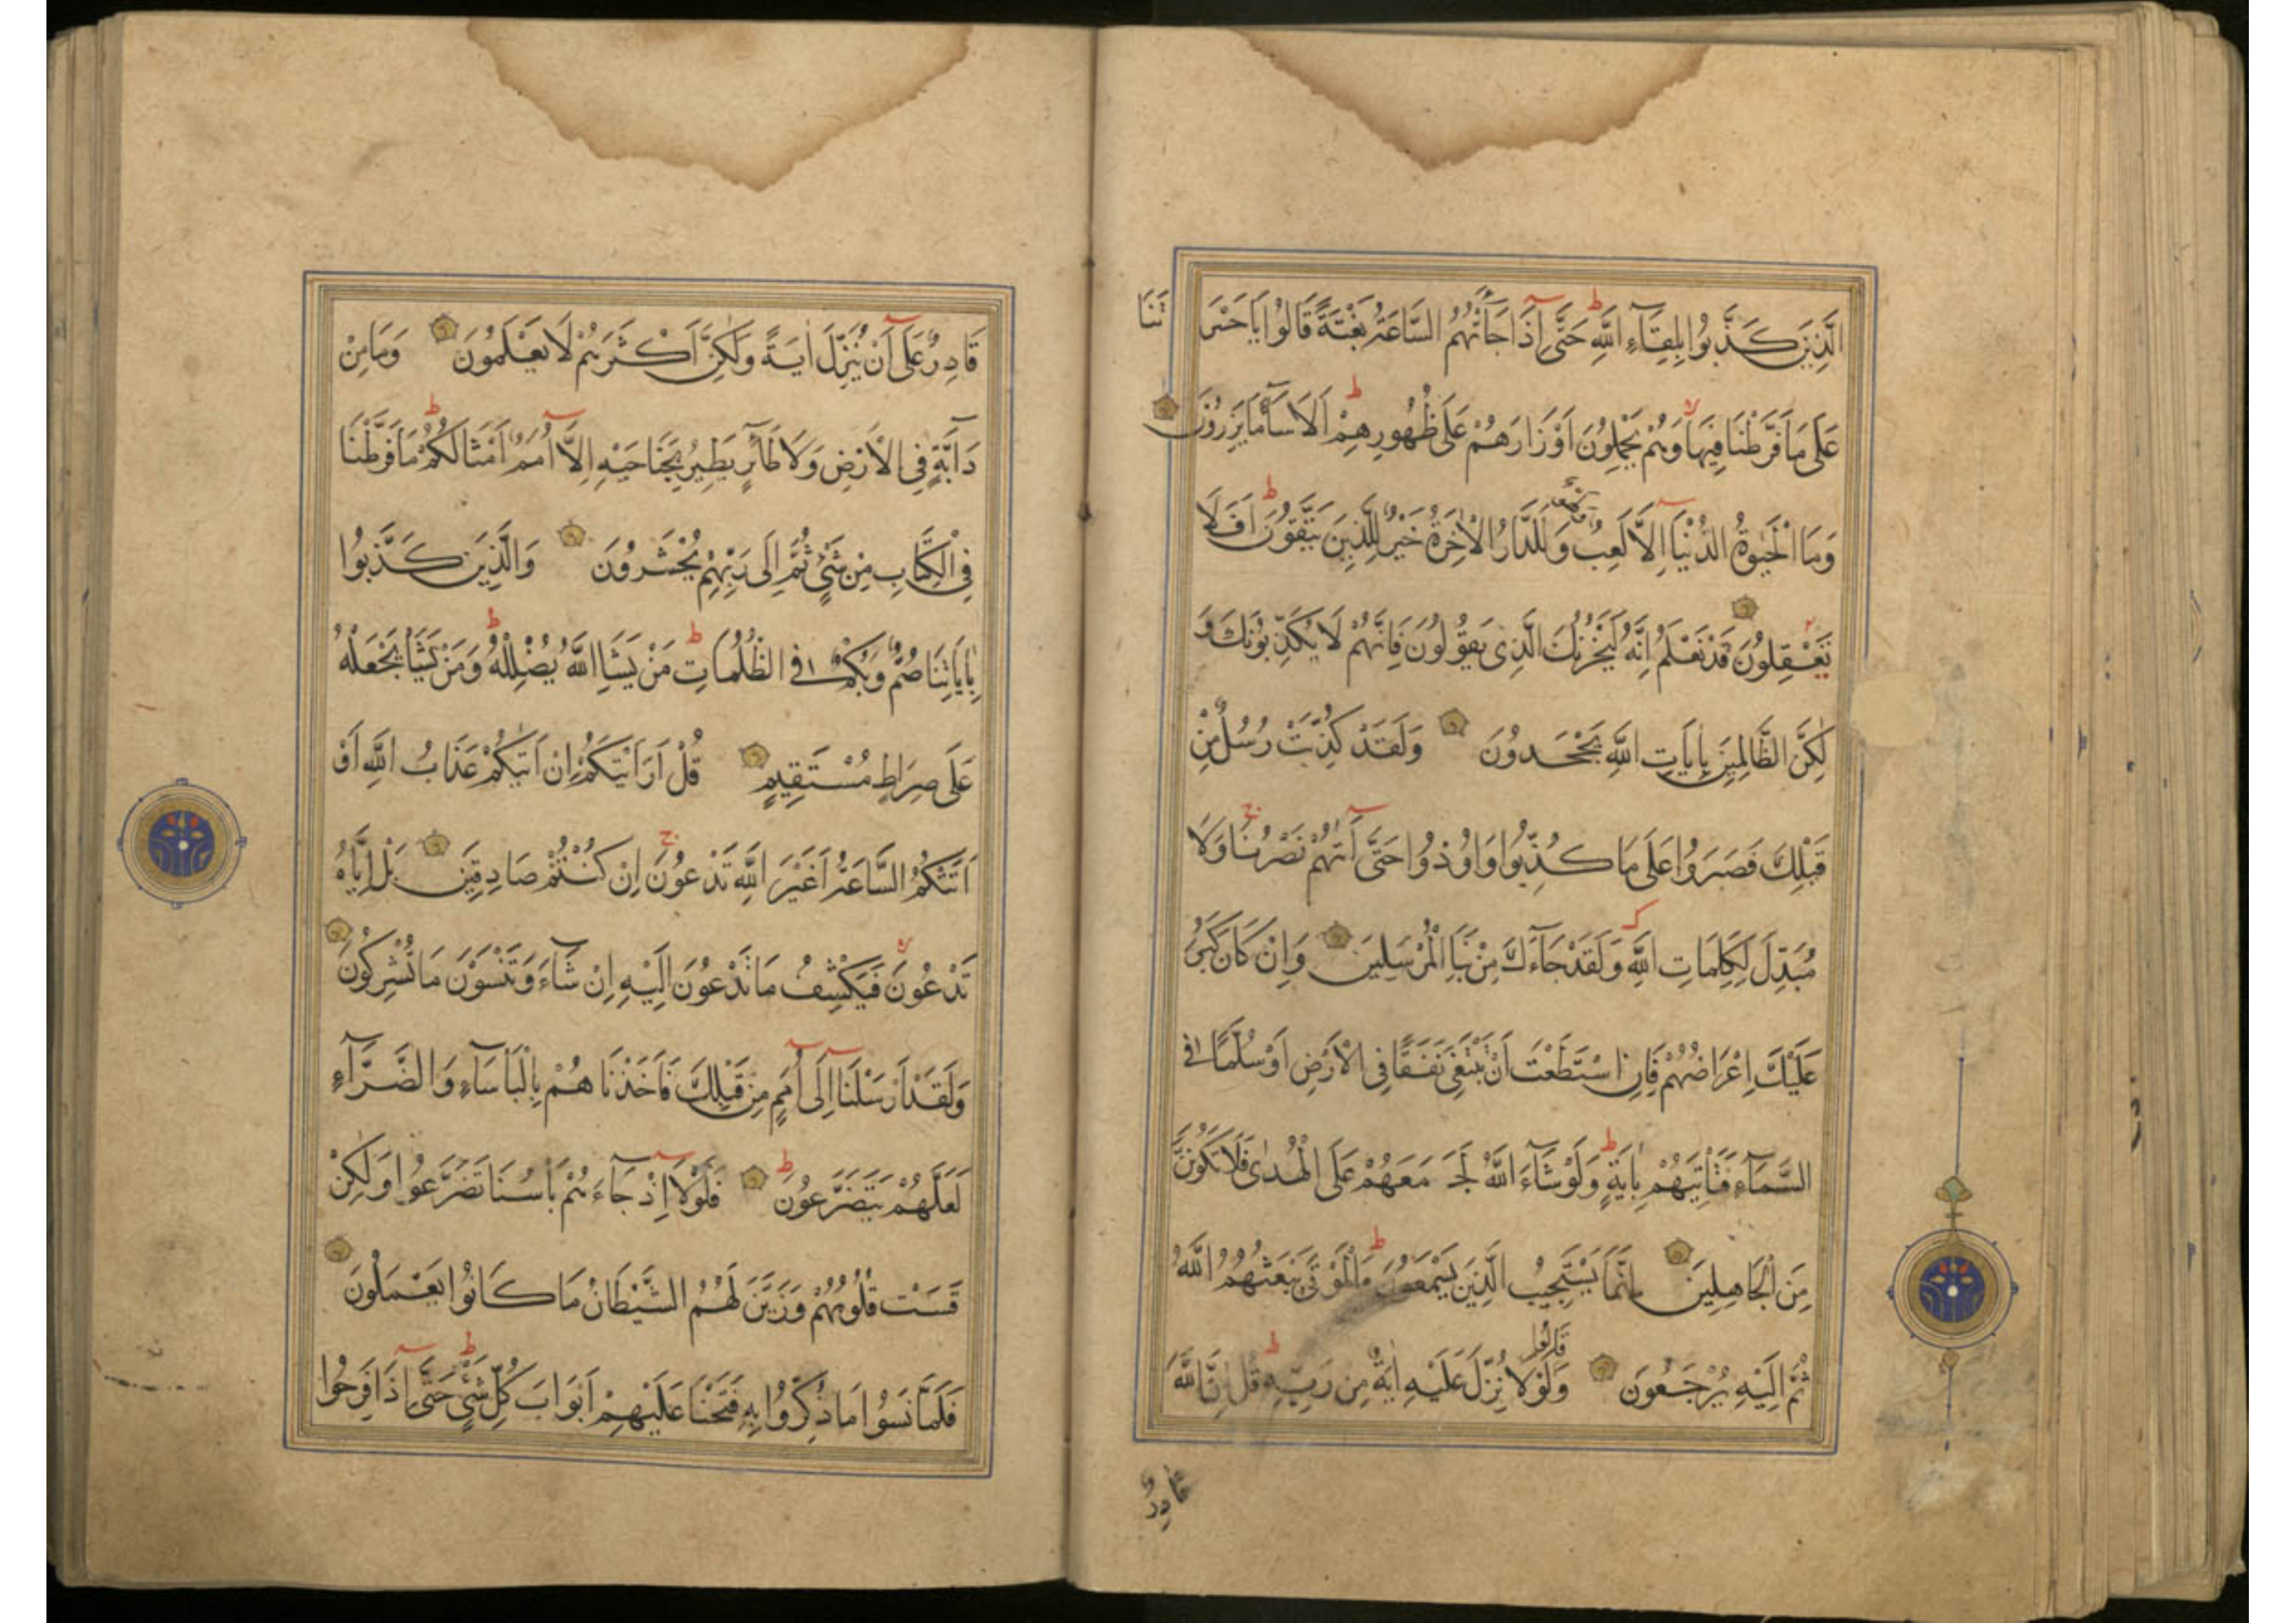 الَّذِينَ كَذَّبُوا بِلِقَاءِ اللَّهِ حَتَّى إِذَا جَاءَتْهُمُ السَّاعَةُ بَغْتَةً قَالُوا يَا حَسْرَ تَنَا
عَلَى مَا فَرَّطْنَا فِيهَا وَهُمْ يَحْمِلُونَ أَوْزَارَهُمْ عَلَى ظُهُورِهِمْ أَلَا سَاءَ مَا يَزِرُونَ
وَمَا الْحَيٰوةُ الدُّنْيَا إِلَّا لَعِبٌ وَلَهْوٌ وَلَلدَّارُ الْآخِرَةُ خَيْرٌ لِلَّذِينَ يَتَّقُونَ أَفَلَا
تَعْقِلُونَ قَدْ نَعْلَمُ إِنَّهُ لَيَحْزُنُكَ الَّذِي يَقُولُونَ فَإِنَّهُمْ لَا يُكَذِّبُونَكَ وَ
لٰكِنَّ الظَّالِمِينَ بِآيَاتِ اللَّهِ يَجْحَدُونَ وَلَقَدْ كُذِّبَتْ رُسُلٌ مِنْ
قَبْلِكَ فَصَبَرُوا عَلَى مَا كُذِّبُوا وَاُوذُوا حَتَّى آتٰهُمْ نَصْرُنَا وَلَا
مُبَدِّلَ لِكَلِمَاتِ اللَّهِ وَلَقَدْ جَاءَكَ مِنْ نَبَاِ الْمُرْسَلِينَ وَإِنْ كَانَ كَبُرَ
عَلَيْكَ إِعْرَاضُهُمْ فَإِنِ اسْتَطَعْتَ أَنْ تَبْتَغِيَ نَفَقًا فِي الْأَرْضِ أَوْ سُلَّمًا فِي
السَّمَاءِ فَتَأْتِيَهُمْ بِآيَةٍ وَلَوْ شَاءَ اللَّهُ لَجَمَعَهُمْ عَلَى الْهُدٰى فَلَا تَكُونَنَّ
مِنَ الْجَاهِلِينَ إِنَّمَا يَسْتَجِيبُ الَّذِينَ يَسْمَعُونَ وَالْمَوْتَى يَبْعَثُهُمُ اللَّهُ
ثُمَّ إِلَيْهِ يُرْجَعُونَ وَقَالُوا لَوْلَا نُزِّلَ عَلَيْهِ آيَةٌ مِنْ رَبِّهِ قُلْ إِنَّ اللَّهَ
قَادِرٌ
قَادِرٌ عَلَى أَنْ يُنَزِّلَ آيَةً وَلٰكِنَّ أَكْثَرَهُمْ لَا يَعْلَمُونَ وَمَا مِنْ
دَابَّةٍ فِي الْأَرْضِ وَلَا طَائِرٍ يَطِيرُ بِجَنَاحَيْهِ إِلَّا أُمَمٌ أَمْثَالُكُمْ مَا فَرَّطْنَا
فِي الْكِتَابِ مِنْ شَيْءٍ ثُمَّ إِلَى رَبِّهِمْ يُحْشَرُونَ وَالَّذِينَ كَذَّبُوا
بِآيَاتِنَا صُمٌّ وَبُكْمٌ فِي الظُّلُمَاتِ مَنْ يَشَاِ اللَّهُ يُضْلِلْهُ وَمَنْ يَشَأْ يَجْعَلْهُ
عَلَى صِرَاطٍ مُسْتَقِيمٍ قُلْ أَرَأَيْتَكُمْ إِنْ أَتٰيكُمْ عَذَابُ اللَّهِ أَوْ
أَتَتْكُمُ السَّاعَةُ أَغَيْرَ اللَّهِ تَدْعُونَ إِنْ كُنْتُمْ صَادِقِينَ بَلْ إِيَّاهُ
تَدْعُونَ فَيَكْشِفُ مَا تَدْعُونَ إِلَيْهِ إِنْ شَاءَ وَتَنْسَوْنَ مَا تُشْرِكُونَ
وَلَقَدْ أَرْسَلْنَا إِلَى أُمَمٍ مِنْ قَبْلِكَ فَأَخَذْنَاهُمْ بِالْبَأْسَاءِ وَالضَّرَّاءِ
لَعَلَّهُمْ يَتَضَرَّعُونَ فَلَوْلَا إِذْ جَاءَهُمْ بَأْسُنَا تَضَرَّعُوا وَلٰكِنْ
قَسَتْ قُلُوبُهُمْ وَزَيَّنَ لَهُمُ الشَّيْطَانُ مَا كَانُوا يَعْمَلُونَ
فَلَمَّا نَسُوا مَا ذُكِّرُوا بِهِ فَتَحْنَا عَلَيْهِمْ أَبْوَابَ كُلِّ شَيْءٍ حَتَّى إِذَا فَرِحُوا